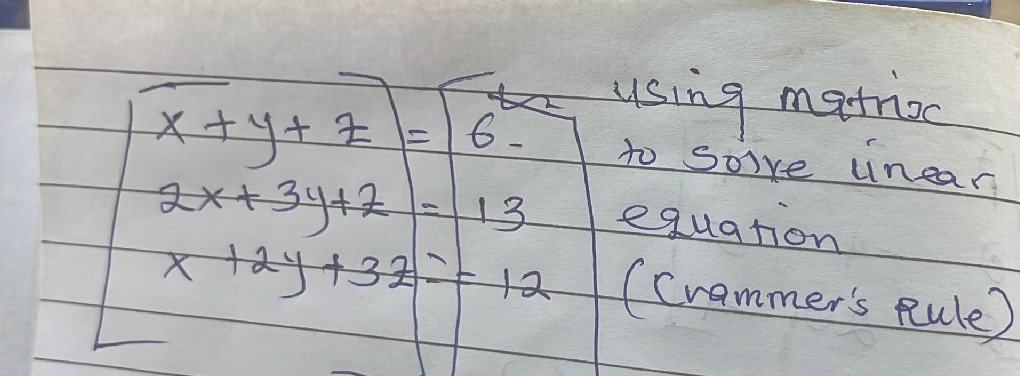 x + y + z = 6
2x + 3y + z = 13
x + 2y + 3z = 12
using matrix
to solve linear
equation
(Crammer's Rule)